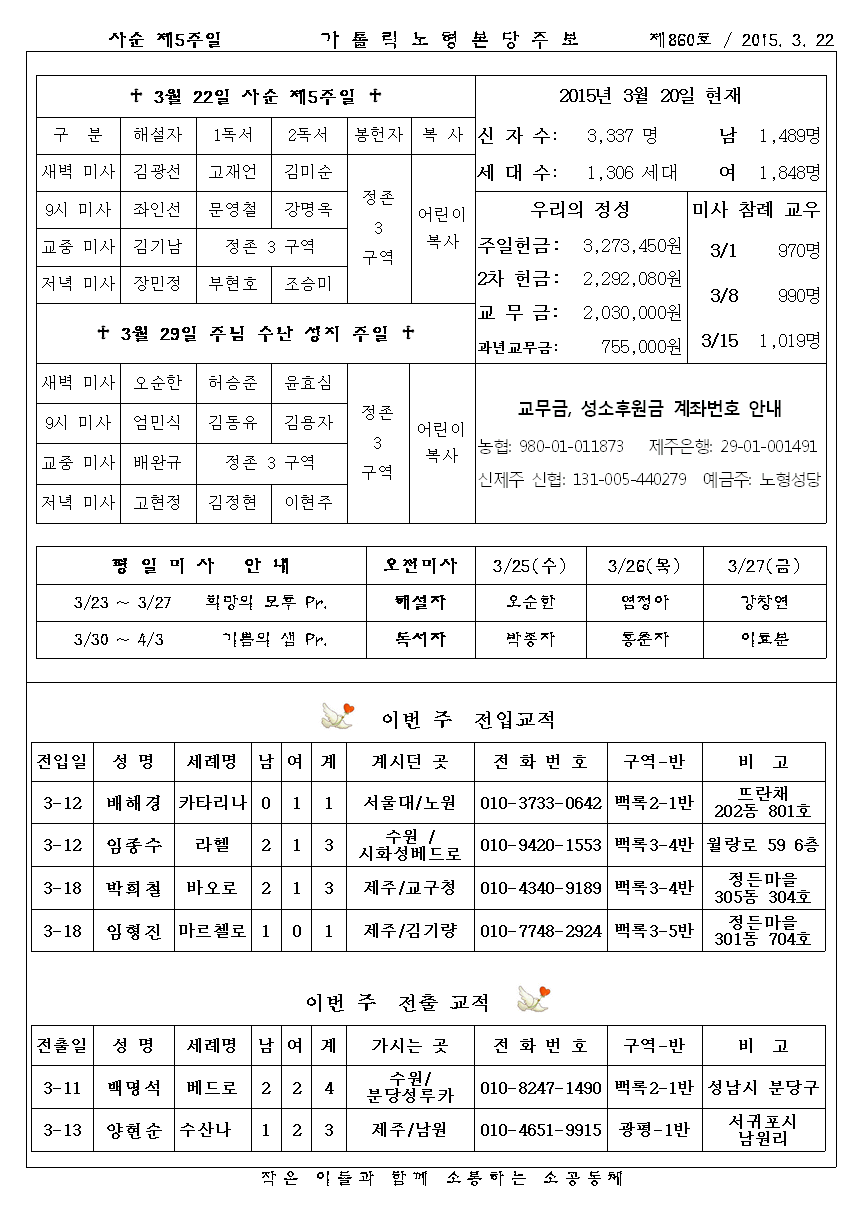 사순 제5주일 가톨릭노형본당주보 제860호 / 2015. 3. 22
✝ 3월 22일 사순 제5주일 ✝
구 분 해설자 1독서 2독서 봉헌자 복 사
새벽 미사 김광선 고재언 김미순
9시 미사 좌인선 문영철 강명옥
교중 미사 김기남 정존 3 구역
저녁 미사 장민정 부현호 조승미
정존
3
구역
어린이
복사
✝ 3월 29일 주님 수난 성지 주일 ✝
새벽 미사 오순한 허승준 윤효심
9시 미사 엄민식 김동유 김용자
교중 미사 배완규 정존 3 구역
저녁 미사 고현정 김정현 이현주
정존
3
구역
어린이
복사
2015년 3월 20일 현재
신 자 수: 3,337 명 남 1,489명
세 대 수: 1,306 세대 여 1,848명
우리의 정성
주일헌금: 3,273,450원
2차 헌금: 2,292,080원
교 무 금: 2,030,000원
과년교무금: 755,000원
미사 참례 교우
3/1 970명
3/8 990명
3/15 1,019명
교무금, 성소후원금 계좌번호 안내
농협: 980-01-011873 제주은행: 29-01-001491
신제주 신협: 131-005-440279 예금주: 노형성당
평 일 미 사 안 내 오전미사 3/25(수) 3/26(목) 3/27(금)
3/23 ~ 3/27 희망의 모후 Pr. 해설자 오순한 염정아 강창연
3/30 ~ 4/3 기쁨의 샘 Pr. 독서자 박종자 홍춘자 이효분
이번 주 전입교적
전입일 성 명 세례명 남 여 계 계시던 곳 전 화 번 호 구역-반 비 고
3-12 배해경 카타리나 0 1 1 서울대/노원 010-3733-0642 백록2-1반 뜨란채 202동 801호
3-12 임종수 라헬 2 1 3 수원 / 시화성베드로 010-9420-1553 백록3-4반 월랑로 59 6층
3-18 박희철 바오로 2 1 3 제주/교구청 010-4340-9189 백록3-4반 정든마을 305동 304호
3-18 임형진 마르첼로 1 0 1 제주/김기량 010-7748-2924 백록3-5반 정든마을 301동 704호
이번 주 전출 교적
전출일 성 명 세례명 남 여 계 가시는 곳 전 화 번 호 구역-반 비 고
3-11 백명석 베드로 2 2 4 수원/ 분당성루카 010-8247-1490 백록2-1반 성남시 분당구
3-13 양현순 수산나 1 2 3 제주/남원 010-4651-9915 광평-1반 서귀포시 남원리
작은 이들과 함께 소통하는 소공동체